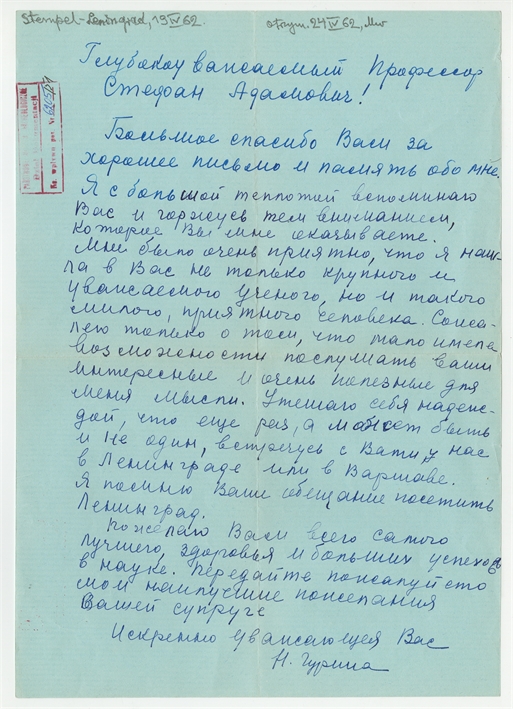 Stempel-Leningrad, 19 IV 62.
otrzym. 24 IV 62, Mw
Глубокоуважаемый Профессор
Стефан Адамович!
Большое спасибо Вам за
хорошее письмо и память обо мне.
Я с большой теплотой вспоминаю
Вас и горжусь тем вниманием,
которое Вы мне оказываете.
Мне было очень приятно, что я наш-
ла в Вас не только крупного и
уважаемого ученого, но и такого
милого, приятного человека. Сожа-
лею только о том, что мало имела
возможности послушать ваши
интересные и очень полезные для
меня мысли. Утешаю себя надеж-
дой, что еще раз, а может быть
и не один, встречусь с Вами у нас
в Ленинграде или в Варшаве.
Я помню Ваше обещание посетить
Ленинград.
Пожелаю Вам всего самого
лучшего, здоровья и больших успехов
в науке. Передайте пожалуйсто
мои наилучшие пожелания
Вашей супруге
Искренно уважающая Вас
Н. Гурина